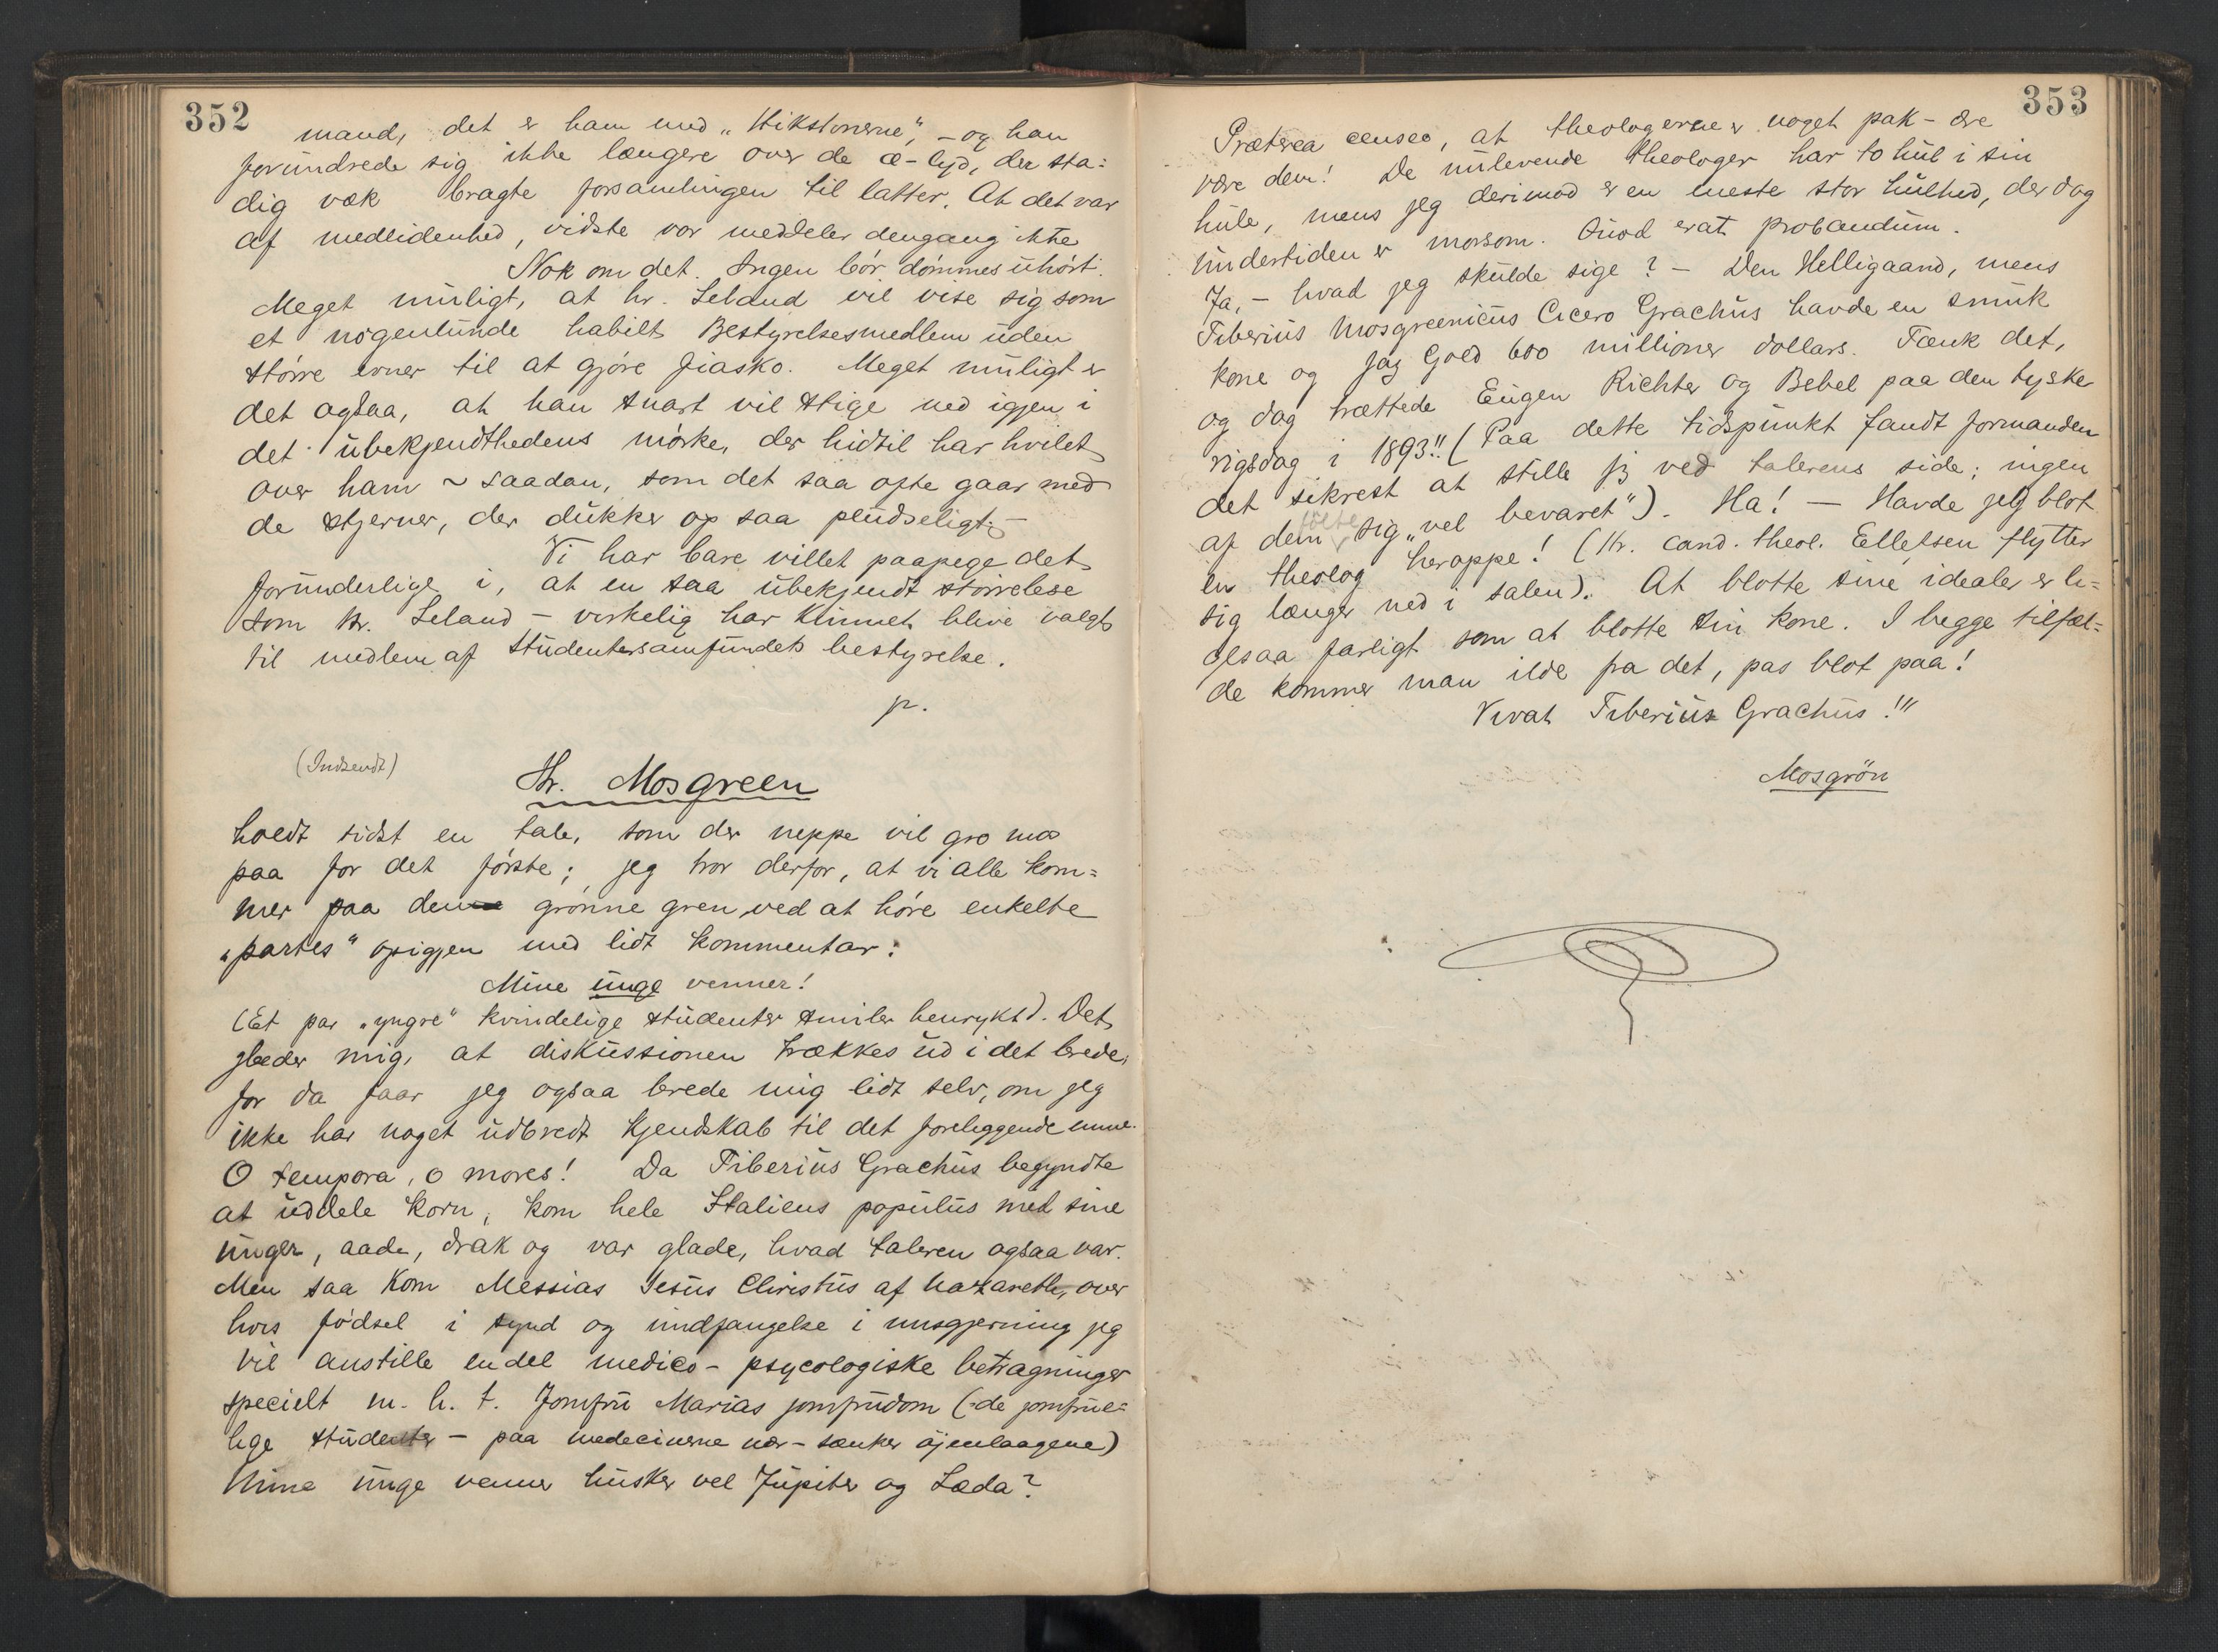 352
mand, det er ham med „Hikstonerne“, – og han
forundrede sig ikke længere over de æ-lyd, der sta=
dig væk bragte forsamlingen til latter. At det var
af medlidenhed, vidste vor meddeler dengang ikke
Nok om det. Ingen bör dömmes uhört.
Meget muligt, at hr. Seland vil vise sig som
et nogenlunde habilt Bestyrelsesmedlem uden
större evner til at gjöre fiasko. Meget muligt er
det ogsaa, at han snart vil stige ned igjen i
det ubekjendthedens mörke, der hidtil har hvilet
over ham ~ saadan, som det saa ofte gaar med
de stjerner, der dukker op saa pludseligt. –
Vi har bare villet paapege det
forunderlige i, at en saa ubekjendt störrelse
som hr. Seland – virkelig har kunnet blive valgt
til medlem af Studentersamfundets bestyrelse.
p.
(Indsendt)
Hr. Mosgreen
holdt sidst en tale, som der neppe vil gro mos
paa for det förste; jeg tror derfor, at vi alle kom=
mer paa den grönne gren ved at höre enkelte
„partes“ opigjen med lidt kommentar:
Mine unge venner!
(Et par „yngre“ kvindelige studenter smiler henrykt). Det
gleder mig, at diskussionen trækkes ud i det brede,
for da faar jeg ogsaa brede mig lidt selv, om jeg
ikke har noget udbredt kjendskab til det foreliggende emne.
O tempora, o mores! Da Tiberius Grachus begyndte
at uddele korn, kom hele Italiens populus med sine
unger, aade, drak og var glade, hvad taleren ogsaa var.
Men saa kom Messias Jesus Christus af Nazareth, over
hvis födsel i synd og undfangelse i misgjerning jeg
vil anstille endel medico-psycologiske betragninger
specielt m. h. t. Jomfru Marias jomfrudom (de jomfrue=
lige studenter – paa medecinerne nær – sænker öjenlaagene)
Mine unge venner husker vel Jupiter og Læda?
353
Præterea censeo, at theologerne er noget pak – ære
være dem! De nulevende theologer har to hul i sin
hule, mens jeg derimod er en eneste stor hulhed, der dog
undertiden er morsom. Quod erat probandum.
Ja, – hvad jeg skulde sige? – Den Helligaand, mens
Tiberius Mosgreenicus Cicero Grachus havde en smuk
kone og Jay Gold 600 millioner dollars. Tænk det,
og dog trættede Eugen Richter og Bebel paa den tyske
rigsdag i 1893!! (Paa dette tidspunkt fandt formanden
det sikrest at stille sig ved talerens side; ingen
af dem fölte sig „vel bevaret“). Ha! – Havde jeg blot
en theolog heroppe! (Hr. cand. theol. Elletsen flytter
sig længer ned i salen). At blotte sine idealer er li=
gesaa farligt som at blotte sin kone. I begge tilfæl=
de kommer man ilde fra det, pas blot paa!
Vivat Tiberius Grachus!“
Mosgrön